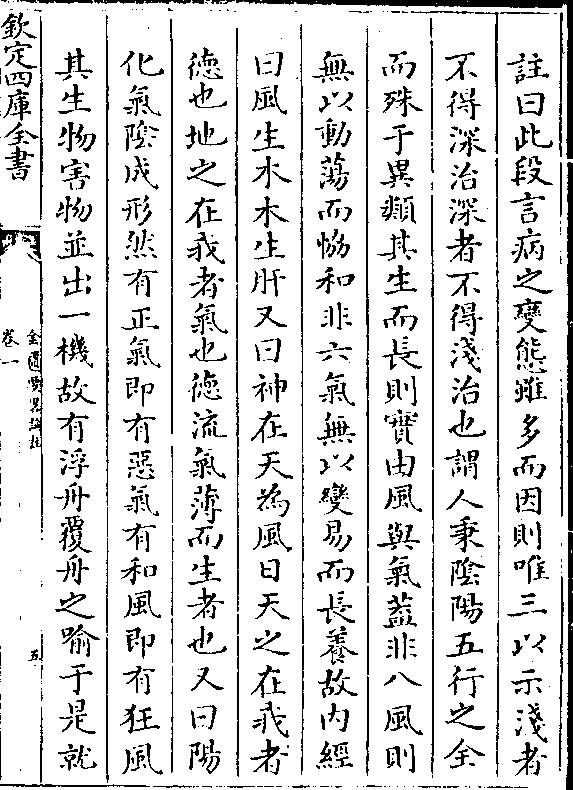 註曰此段言病之變態雖多而因則唯三以示淺者
不得深治深者不得淺治也謂人秉陰陽五行之全
而殊于異類其生而長則實由風與氣蓋非八風則
無以動蕩而恊和非六氣無以變易而長養故内經
曰風生木木生肝又曰神在天為風曰天之在我者
徳也地之在我者氣也徳流氣薄而生者也又曰陽
化氣陰成形然有正氣即有惡氣有和風即有狂風
其生物害物並出一機故有浮舟覆舟之喻于是就
欽定四庫全書
卷一
金匱要畧論註
五